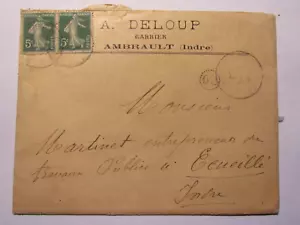 A. DELOUP
CARRIER
AMBRAULT (Indre)
5c 5c
Monsieur
Martinet entrepreneur de
travaux Publics à Écueillé
Indre